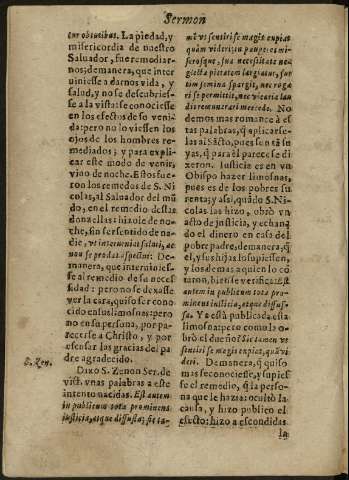 Sermon
tur obtutibus. La piedad, y
misericordia de nuestro
Saluador, fue remediar-
nos; demanera, que inter
uiniesse a darnos vida, y
salud, y no se descubries-
se a la vista: se conociesse
en los efectos de so veni-
da: pero no lo viessen los
ojos de los hombres re-
mediados; y para expli-
car este modo de venir,
vino de noche. Estos fue-
ron los remedos de S. Ni
colas, al Saluador del mũ
do, en el remedio destas
donzellas: hizole de no-
che, sin ser sentido de na-
die,
Demanera, que interuinies-
se al remedio de su neces
sidad: pero no se dexasse
ver la cara, quiso ser cono
cido en sus limosnas: pero
no en su persona, por pa-
recerse a Christo, y por
escusar las gracias del pa
dre agradecido.
S. Zen.
Dixo S. Zenon Ser. de
vnas palabras a este
intento nacidas. Est autem
in publicum tota prominens
iusticia, atque diffusa; sic ta-
men vi sentiri se magis cupiat
quàm videri;
necessitate
pietatem largiatur,
semina spargit, nec roga
ri se permittit,
No
demos mas romance à es
tas palabras, q̃ aplicarse-
las al Sãcto, pues son tã su
yas, q̃ para èl parece se di
xeron. Iusticia es en vn
Obispo hazer limosnas,
pues es de los pobres su
renta; y assi, quãdo S. Ni-
colas las hizo, obrò vn
acto de justicia, y echan-
do el dinero en casa del
pobre padre, demanera, q̃
el, y sus hijas lo supiessen,
y los demas a quien lo cõ
taron, bien se verifica: Est
autem in publicum tota pro-
minens iusticia, atque diffu-
sa. Ya està publicada esta
limosna: pero como la o-
brò el dueño? Sic tamen vt
sentiri se magis cupiat, quã vi-
deri. Demanera, q̃ quiso
mas se conociesse, y supies
se el remedio, q̃ la perso-
na que le hazia: ocultò la
causa, y hizo publico el
efecto: hizo a escondidas
la